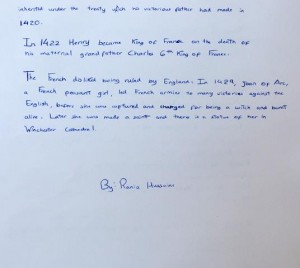 inherited under the treaty which his victorious father had made in
1420.
In 1422 Henry became King of France on the death of
his maternal grandfather Charles 6th King of France.
The French dislike being ruled by England. In 1429, Joan of Arc,
a French peasant girl, led French armies to many victories against the
English, before she was captured and charged for being a witch and burnt
alive. Later she was made a saint and there is a statue of her in
Winchester Cathedral.
By: Rania